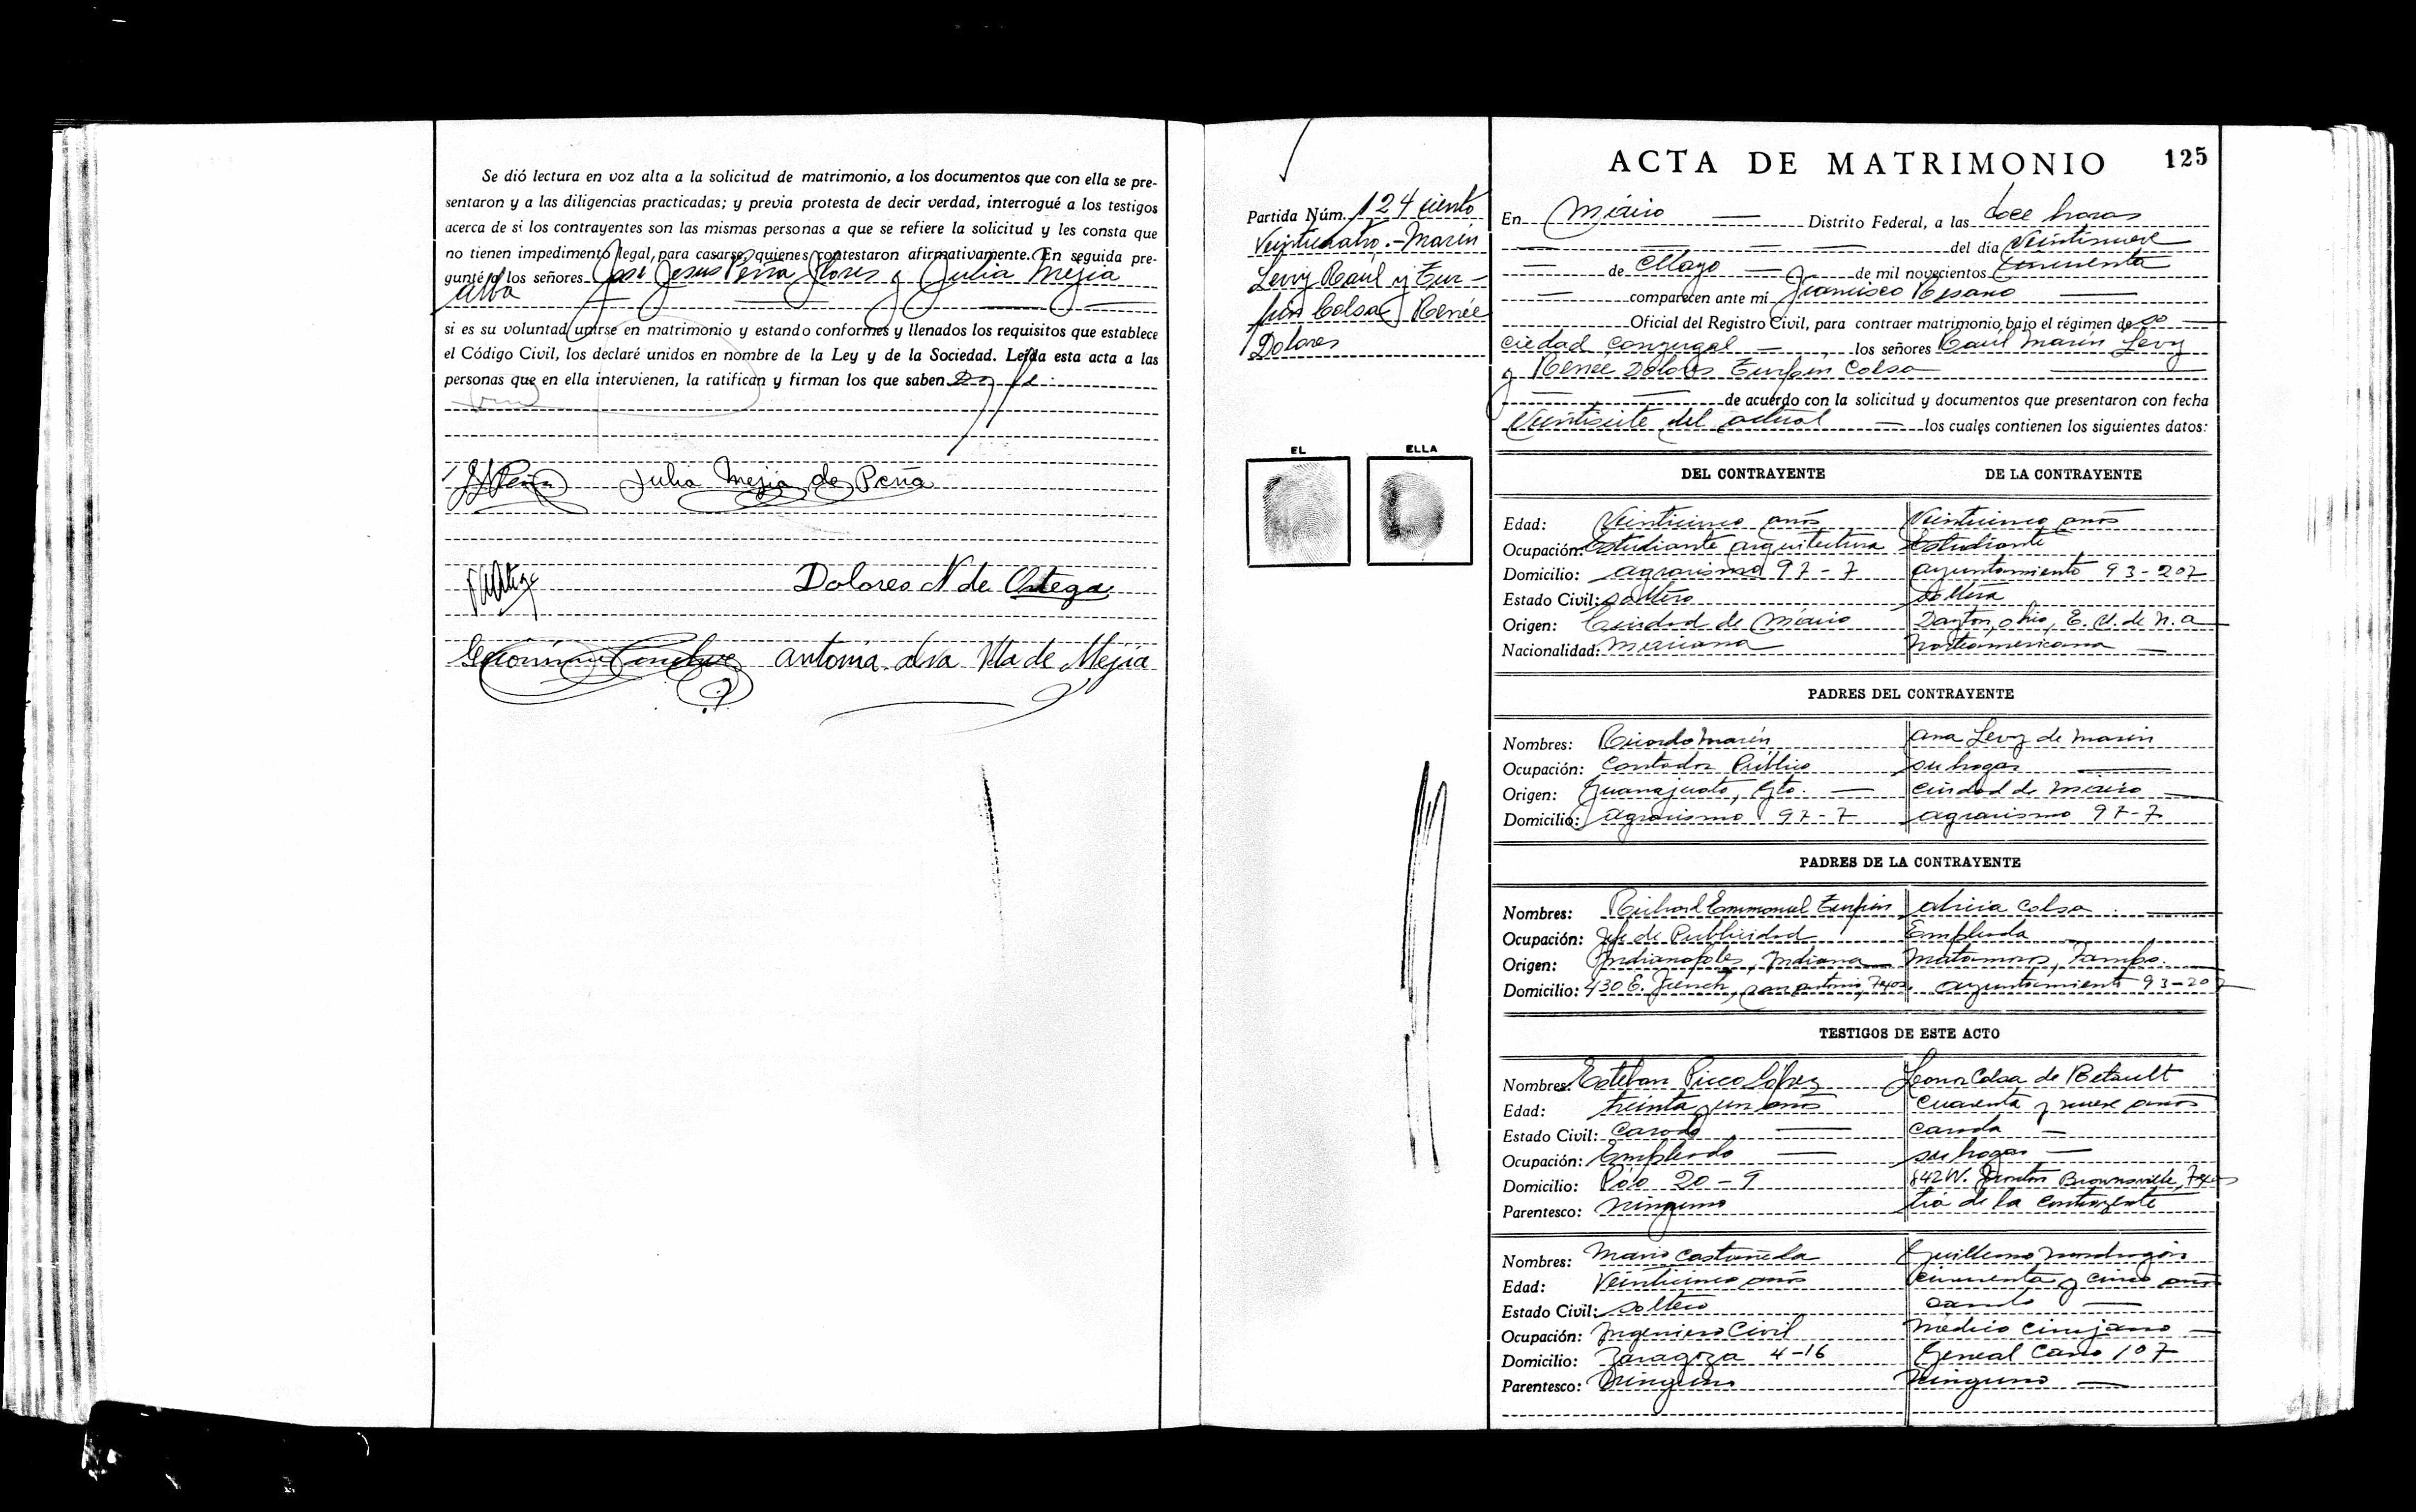 Se dió lectura en voz alta a la solicitud de matrimonio, a los documentos que con ella se pre-
sentaron y a las diligencias practicadas; y previa protesta de decir verdad, interrogué a los testigos
acerca de si los contrayentes son las mismas personas a que se refiere la solicitud y les consta que
no tienen impedimento legal, para casarse, quienes contestaron afirmativamente. En seguida pre-
gunté a los señores José Jesus Peña Flores y Julia Mejia
Alba
si es su voluntad unirse en matrimonio y estando conformes y llenados los requisitos que establece
el Código Civil, los declaré unidos en nombre de la Ley y de la Sociedad. Leída esta acta a las
personas que en ella intervienen, la ratifican y firman los que saben Doy fe.
JJ Peña Julia Mejia de Peña
Dolores N de Ortega
antonia alva Vda de Mejia
ACTA DE MATRIMONIO 125
Partida Núm. 124 ciento
Veinticuatro.- Marín
Levy Raúl y Tur-
pin Colsa Renée
Dolores
EL ELLA
En México Distrito Federal, a las doce horas
del día Veintinueve
de Mayo de mil novecientos cincuenta
comparecen ante mí Francisco
Oficial del Registro Civil, para contraer matrimonio bajo el régimen de so
ciedad conyugal los señores Raúl Marín Levy
y Renée Dolores Turpin Colsa
de acuerdo con la solicitud y documentos que presentaron con fecha
Veintisiete del actual los cuales contienen los siguientes datos:
DEL CONTRAYENTE DE LA CONTRAYENTE
Edad: Veinticinco años Veinticinco años
Ocupación: Estudiante arquitectura Estudiante
Domicilio: agrarismo 97-7 ayuntamiento 93-207
Estado Civil: soltero soltera
Origen: Ciudad de México Dayton, Ohio, E. U. de N. a
Nacionalidad: mexicana Norteamericana
PADRES DEL CONTRAYENTE
Nombres: Ricardo Marín Ana Levy de Marín
Ocupación: Contador Público su hogar
Origen: Guanajuato, Gto. Ciudad de México
Domicilio: agrarismo 97-7 agrarismo 97-7
PADRES DE LA CONTRAYENTE
Nombres: Richard Emmanuel Turpin alicia Colsa
Ocupación: Jefe de Publicidad Empleada
Origen: Indianapoles, Indiana Matamoros, Tamps.
Domicilio: 430 E. French, San antonio, Texas. ayuntamiento 93-207
TESTIGOS DE ESTE ACTO
Nombres: Esteban López Leonor Colsa de Betault
Edad: treinta y un años cuarenta y nueve años
Estado Civil: Casado casada
Ocupación: Empleado su hogar
Domicilio: 20-9 842 W. Brownsville, Texas
Parentesco: ninguno tía de la contrayente
Nombres: Mario Castañeda Guillermo Mondragón
Edad: Veinticinco años cincuenta y cinco años
Estado Civil: soltero casado
Ocupación: Ingeniero Civil Médico Cirujano
Domicilio: Zaragoza 4-16 General Cano 107
Parentesco: Ninguno Ninguno